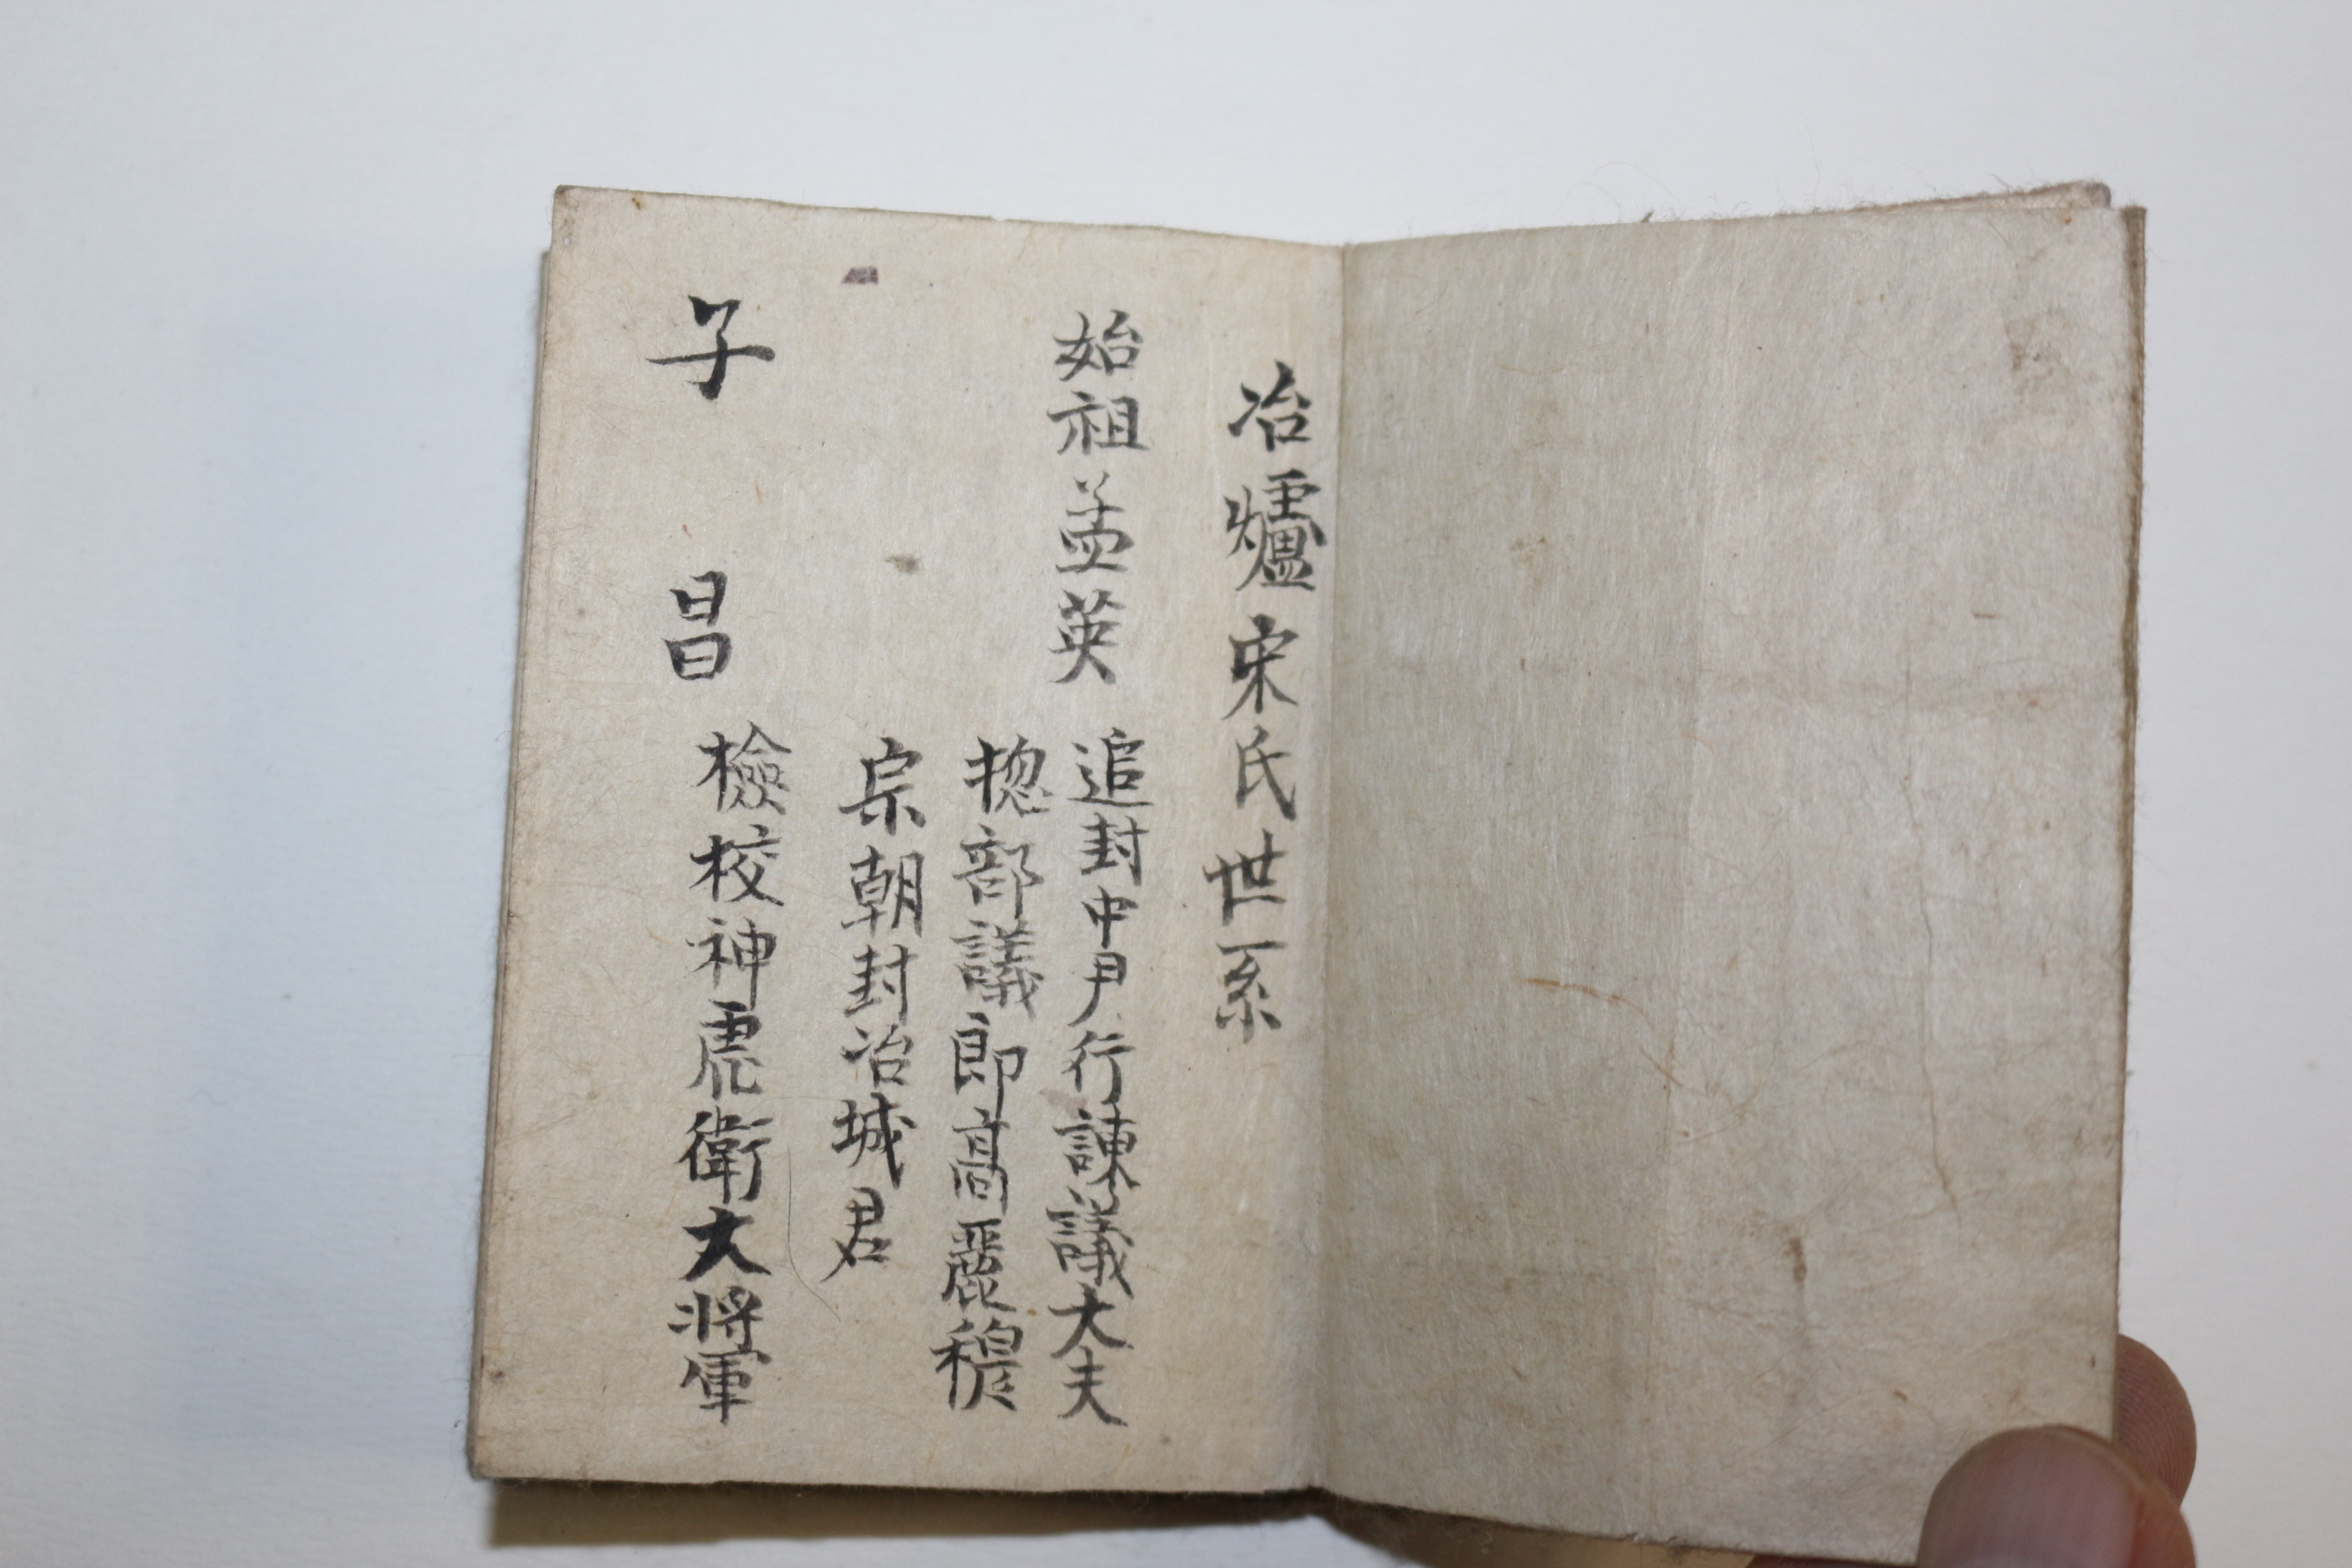 冶爐宋氏世系
始祖孟英 追封中尹行諫議大夫
摠部議郎高麗穆
宗朝封冶城君
子 昌 檢校神虎衛大將軍